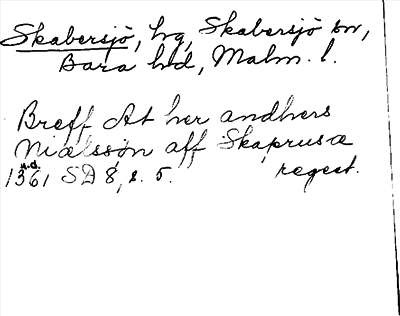 Skabersjö, hg, Skabersjö sn,
Bara hd, Malm. l.
Breff At her andhers
Niælssøn aff Skaprusæ
u.d.
1361 SD 8, s. 5. regest.